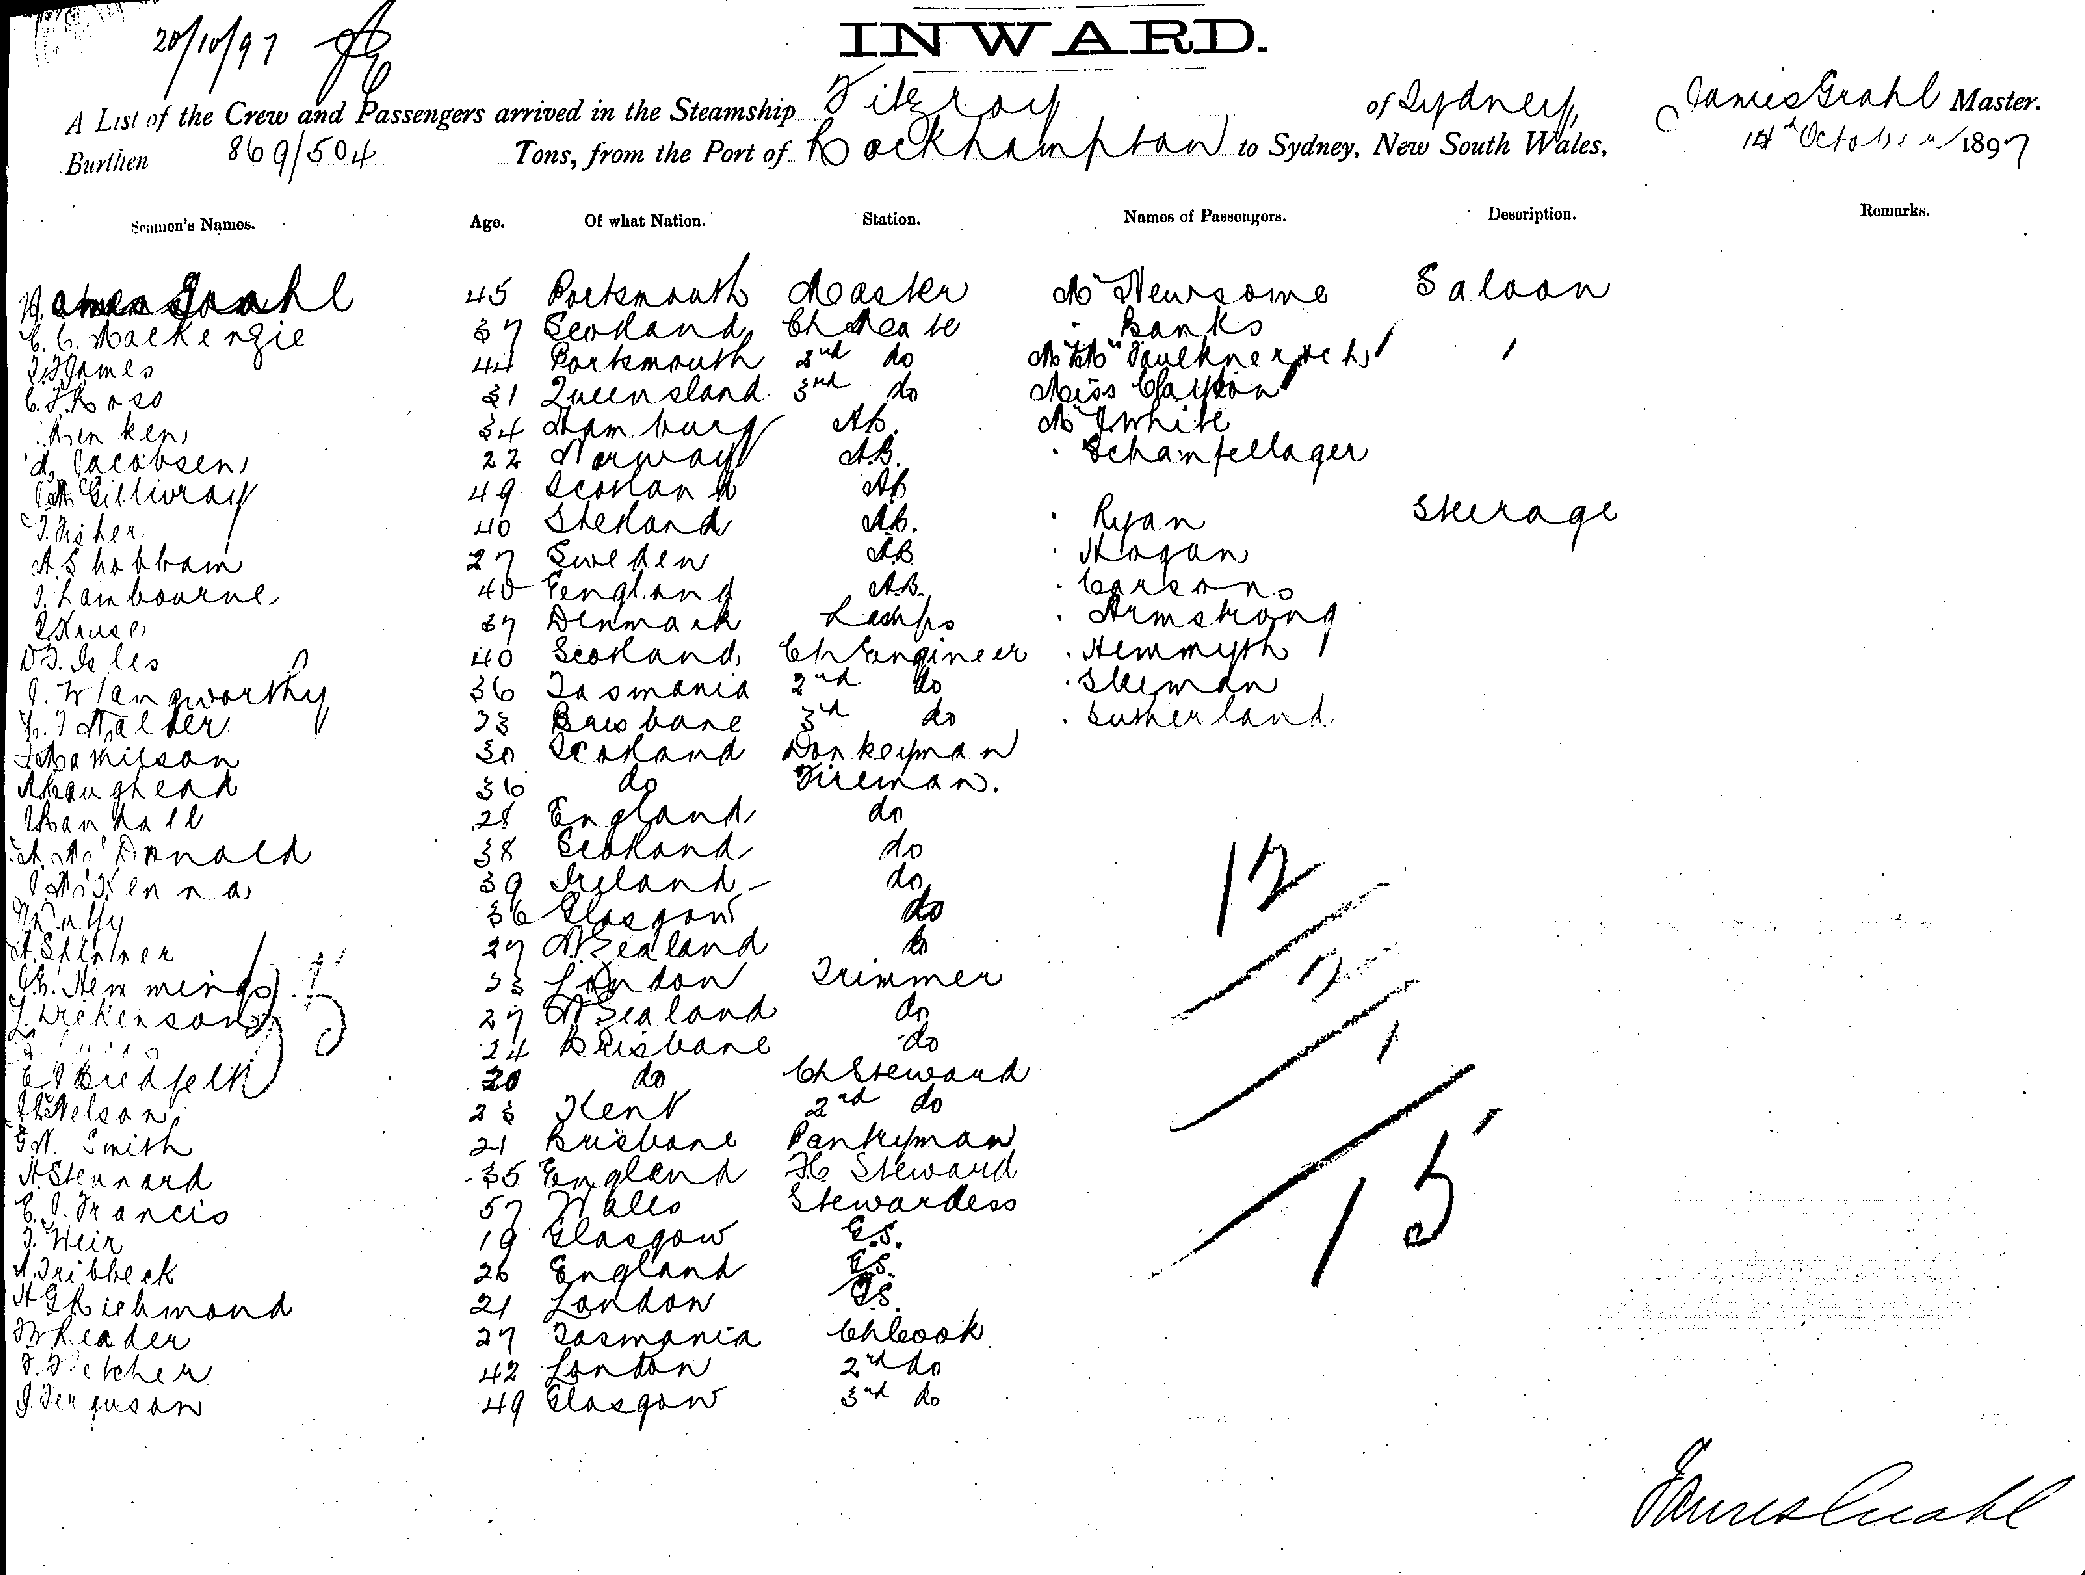 20/10/97
INWARD.
A List of the Crew and Passengers arrived in the Steamship Fitzroy of Sydney, James Grahl Master.
Burthen 869/504 Tons, from the Port of Rockhampton to Sydney, New South Wales, 14th October 1897
Seamen's Names. Age. Of what Nation. Station. Names of Passengers. Description. Remarks.
James Grahl 45 Portsmouth Master Mr Newsome Saloon
C. C. Mackenzie 37 Scotland Ch Mate " Banks
James 44 Portsmouth 2nd do Mr & Mrs Faulkner
Ross 31 Queensland 3rd do Miss Clayton
34 Hamburg AB. Mr J White
Jacobsen 22 Norway A.B. " Schanfellager
McGillivray 49 Scotland AB
J. Fisher 40 Shetland AB. " Ryan Sterage
A. Shobbam 27 Sweden AB " Hogan
J. Lambourne 40 England AB. " Carsons
Kruse 37 Denmark Lamps " Armstrong
D. J. Isles 40 Scotland Ch Engineer " Hemmyth
J. W Langworthy 36 Tasmania 2nd do " Skeman
Walker 23 Brisbane 3rd do " Sutherland
30 Scotland Donkeyman
36 do Fireman.
28 England do
A. McDonald 38 Scotland do
J McKenna 39 Ireland do
Duffy 36 Glasgow do
A. Spinner 27 N Zealand do
Ch. Hemmings 23 London Trimmer
Dickenson 27 N Zealand do
24 Brisbane do
20 do Ch Steward
Nelson 23 Kent 2nd do
G W. Smith 21 Brisbane Pantryman
A Stennard 35 England F C Steward
C. J. Francis 57 Wales Stewardess
J. Weir 19 Glasgow G.S.
A Tribbeck 26 England G.S.
A G Richmond 21 London G.S.
W Reader 27 Tasmania Ch Cook
F. Fletcher 42 London 2nd do
J. Ferguson 49 Glasgow 3rd do
12
2
1
15
James Grahl